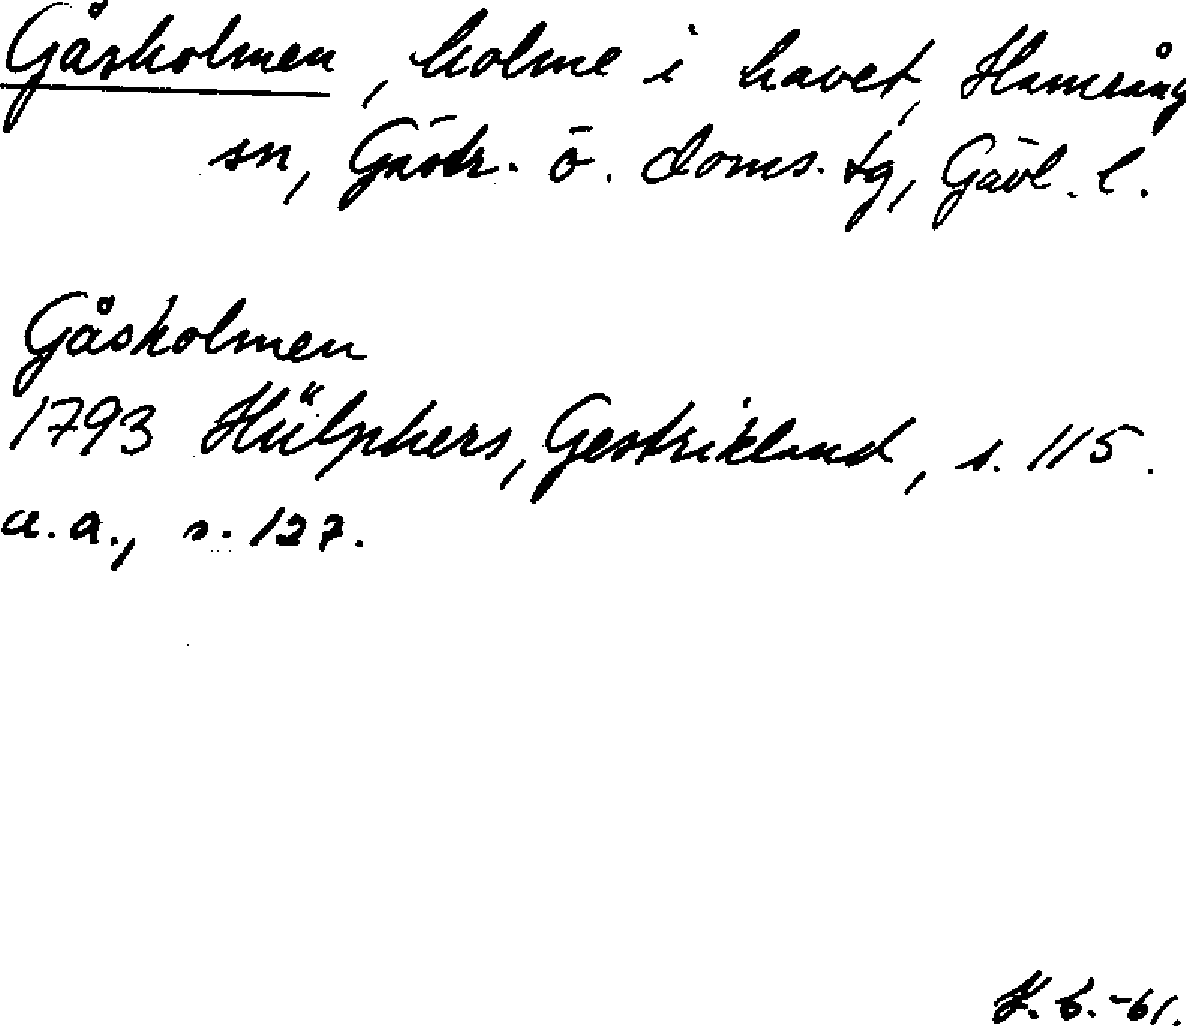 Gåsholmen, holme i havet, Hamrång
sn, Gästr. ö. doms. tg, Gävl. l.
Gåsholmen
1793 Hülphers, Gestrikland, s. 115.
a.a., s. 127.
K. C. -61.